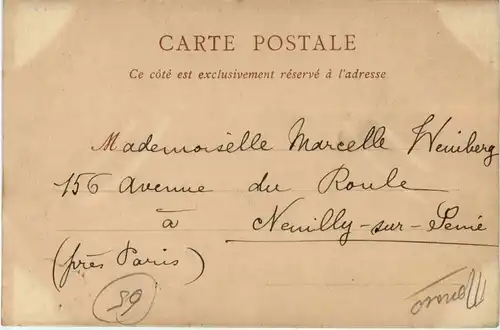 CARTE POSTALE
Ce côté est exclusivement réservé à l'adresse
Mademoiselle Marcelle Weinberg
156 avenue du Roule
à Neuilly-sur-Seine
(près Paris)
59